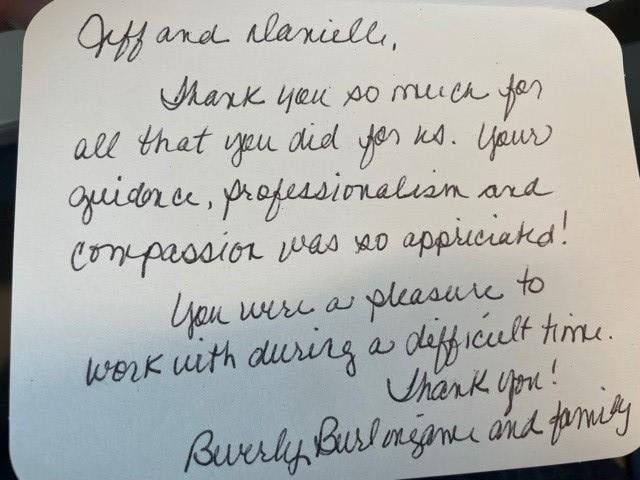 Jeff and Danielle,
Thank you so much for
all that you did for us. Your
guidance, professionalism and
compassion was so appriciated!
You were a pleasure to
work with during a difficult time.
Thank you!
Beverly Burlongame and family